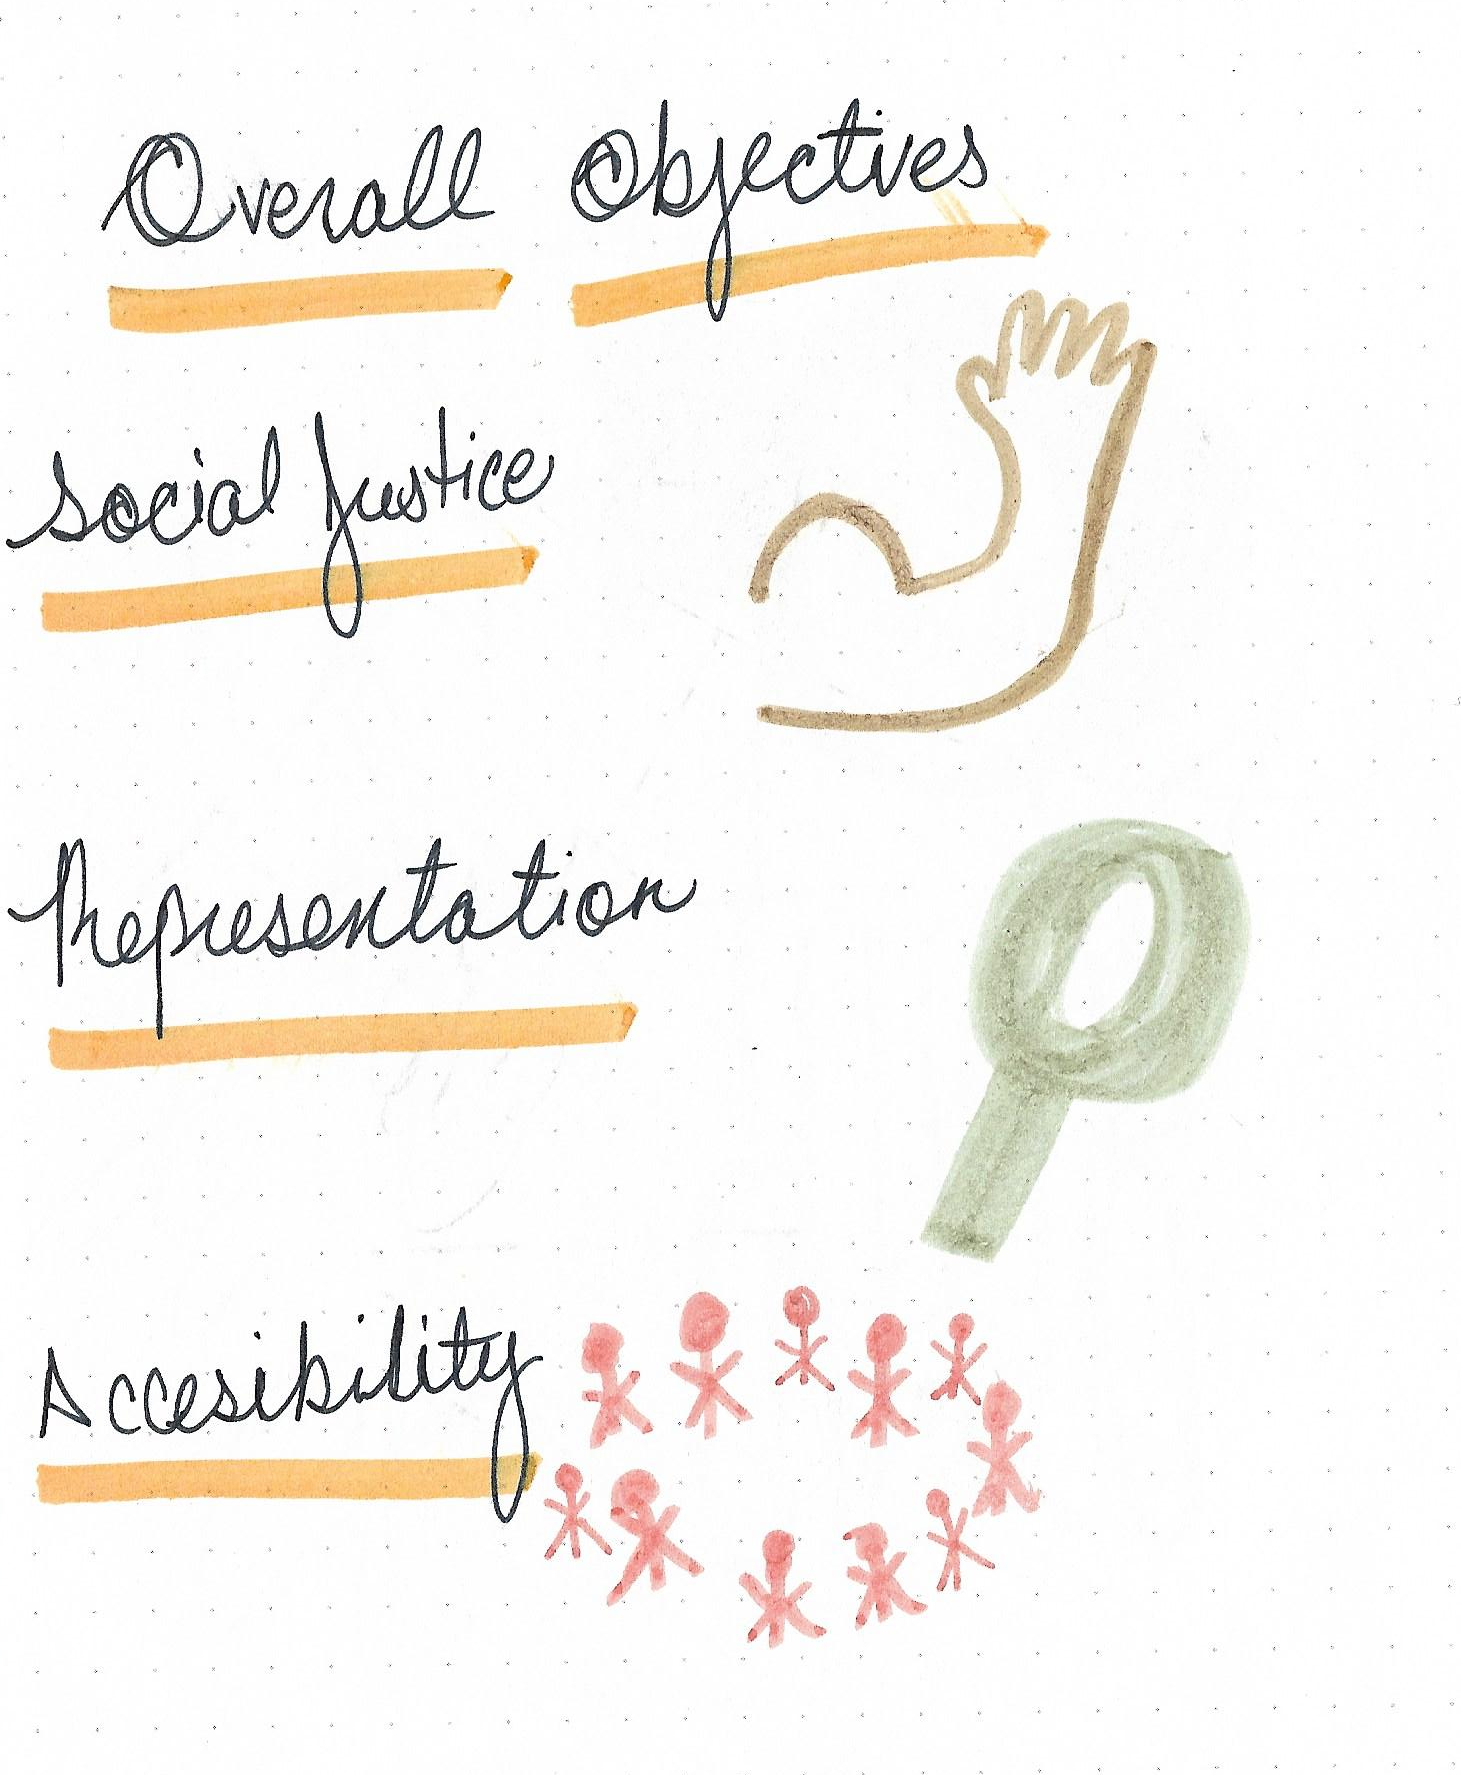 Overall Objectives
Social Justice
Representation
Accesibility